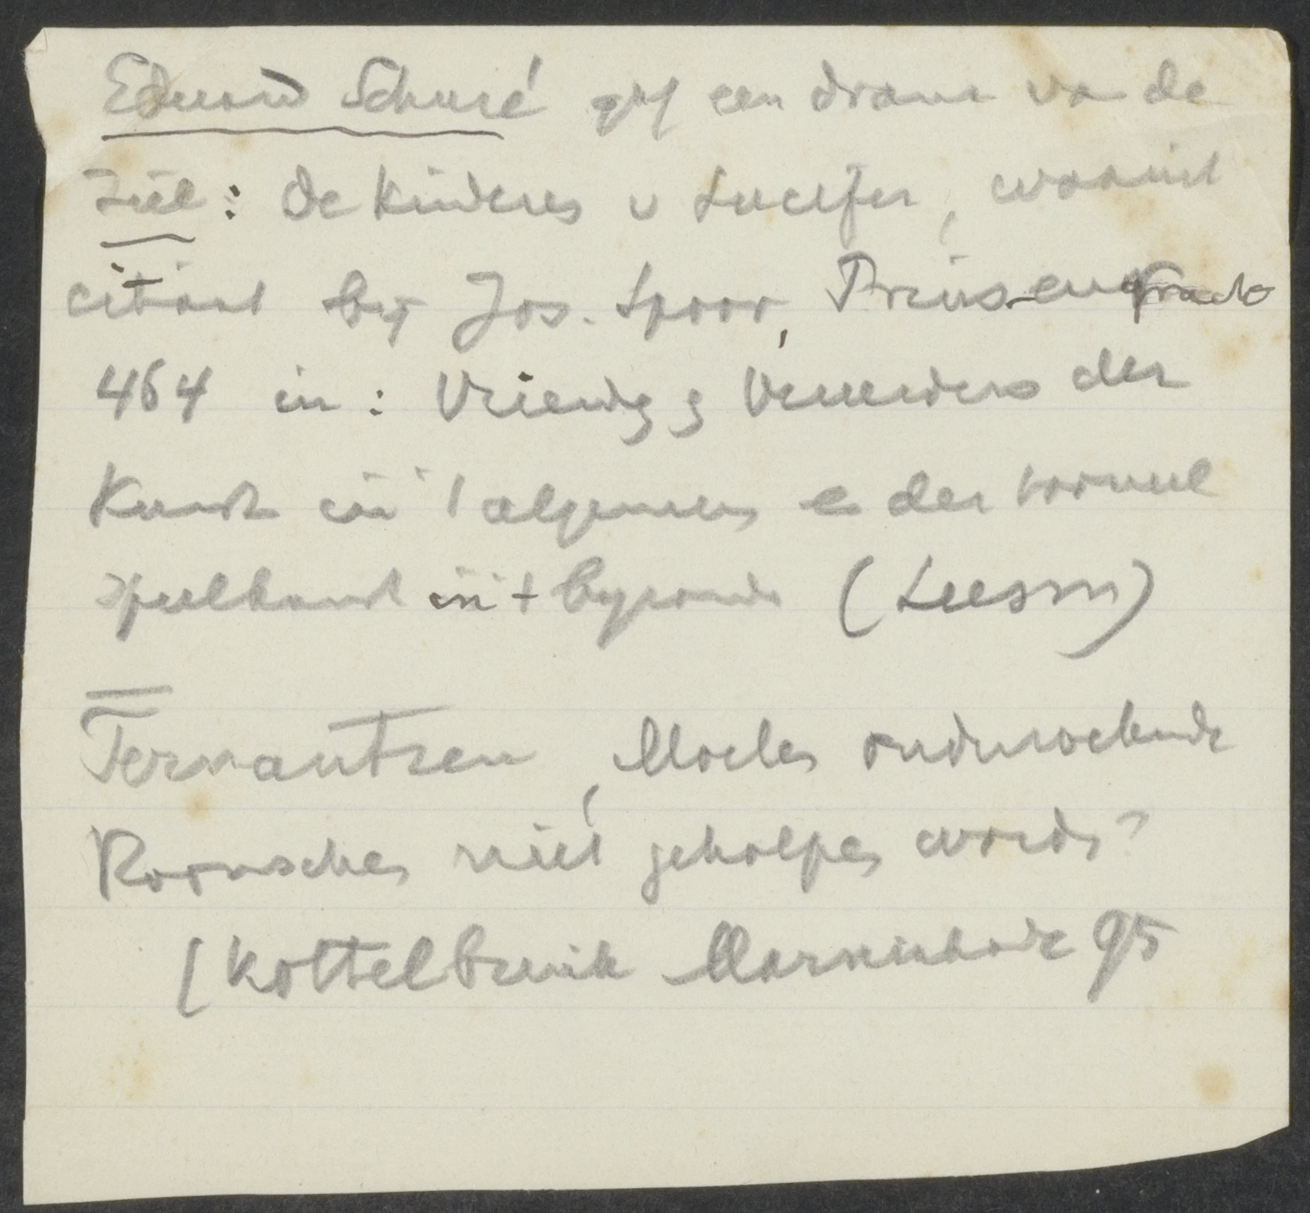 Eduard Schuré gaf een drama va de
ziel: De kinderen v Lucifer, waaruit
citaat by Jos. Spoor, Prinsengracht
464 in: Vriend en Vereerders der
Kunst in 't algemeen e der tooneel
speelkunst in 't byzonder (Leesm)
Fernantzen, Moeten onderzoekende
Roomschen niet geholpen worden?
(Kottelbrink Marnixkade 95